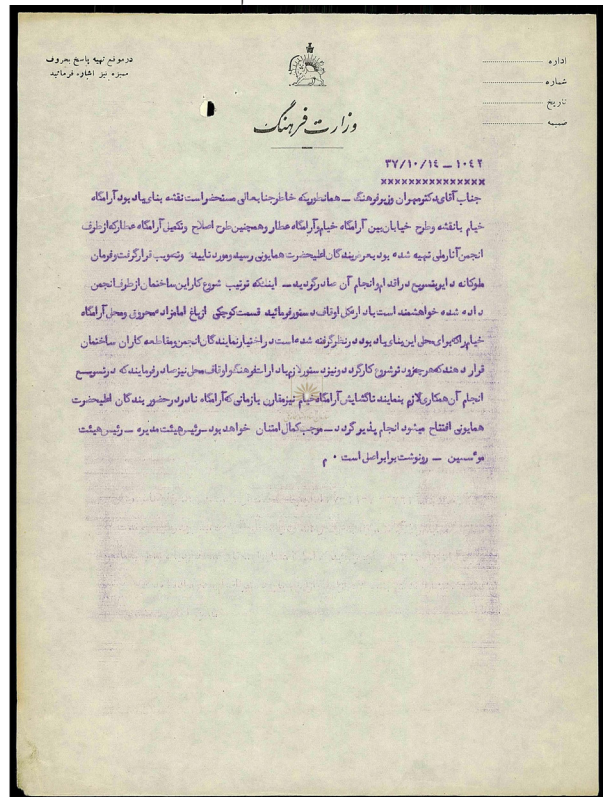 اداره
شماره
تاریخ
ضمیمه
در موقع تهیه پاسخ بحروف
ممیزه نیز اشاره فرمائید
وزارت فرهنگ
۱۰۴۲ ـ ۳۷/۱۰/۱۴
xxxxxxxxxxxxxxx
جناب آقای دکتر مهران وزیر فرهنگ ـ همانطوریکه خاطر جنابعالی مستحضر است نقشه بنای یاد بود آرامگاه
خیام با نقشه وطرح خیابان بین آرامگاه خیام وآرامگاه عطار وهمچنین طرح اصلاح وتکمیل آرامگاه عطار که از طرف
انجمن آثار ملی تهیه شده بود بعرض بندگان اعلیحضرت همایونی رسید ومورد تایید وتصویب قرار گرفت وفرمان
ملوکانه در این تسریع در اقدام وانجام آن صادر گردید ـ اینک که ترتیب شروع کار این ساختمان از طرف انجمن
داده شده خواهشمند است باداره کل اوقاف دستور فرمائید قسمت کوچکی از باغ امامزاده محروق ومحل آرامگاه
خیام را که برای محل این بنای یاد بود در نظر گرفته شده است در اختیار نمایندگان انجمن ومقاطعه کاران ساختمان
قرار دهند که هر چه زودتر شروع کار گردد ونیز دستور لازم بادارات فرهنگ واوقاف محل نیز صادر فرمایند که در تسریع
انجام آن همکاری لازم بنمایند تا گشایش آرامگاه خیام نیز مقارن با زمانی که آرامگاه نادر در حضور بندگان اعلیحضرت
همایونی افتتاح میشود انجام پذیر گردد ـ موجب کمال امتنان خواهد بود ـ رئیس هیئت مدیره ـ رئیس هیئت
موٴسسین ـ رونوشت برابر اصل است ۰ م